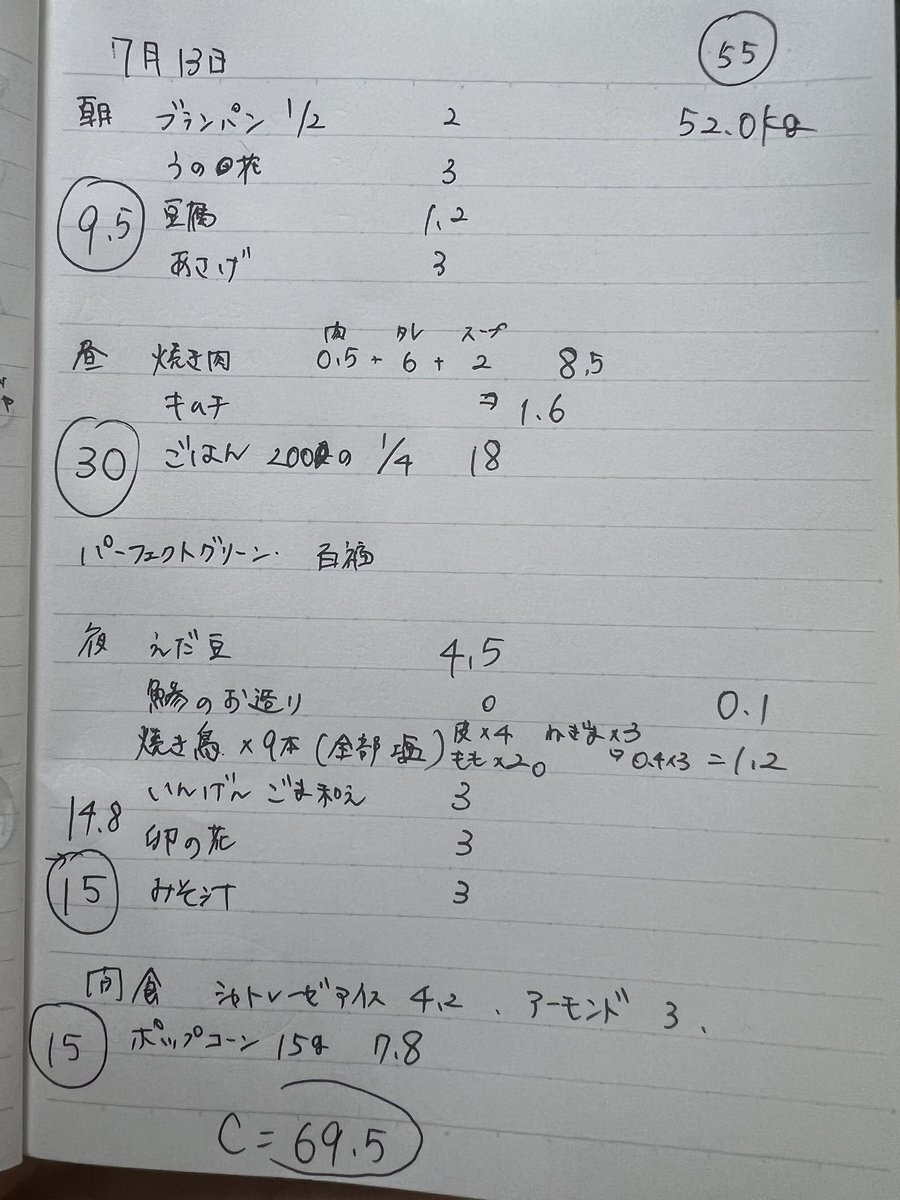 7月13日
55
52.0kg
朝 ブランパン 1/2 2
うの花 3
9.5
豆腐 1.2
あさげ 3
肉 タレ スープ
昼 焼き肉 0.5 + 6 + 2 8.5
キムチ ⇒ 1.6
30
ごはん 200の 1/4 18
パーフェクトグリーン・ 百福
夜 えだ豆 4.5
鯵のお造り 0 0.1
焼き鳥 ×9本 (全部塩) 皮×4 ねぎま×3
もも×2 0 → 0.4×3 = 1.2
いんげん ごま和え 3
14.8
卯の花 3
15
みそ汁 3
間食 シャトレーゼアイス 4.2 、アーモンド 3、
15
ポップコーン 15g 7.8
C = 69.5